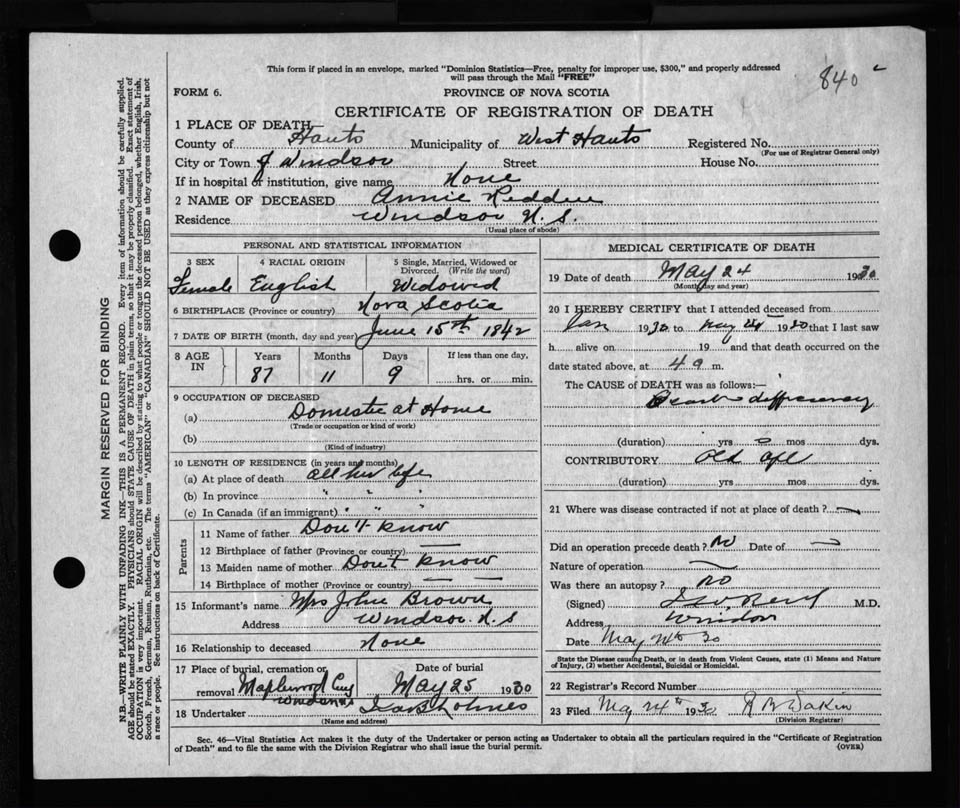 This form if placed in an envelope, marked "Dominion Statistics—Free, penalty for improper use, $300," and properly addressed
will pass through the Mail "FREE"
840
FORM 6.
PROVINCE OF NOVA SCOTIA
CERTIFICATE OF REGISTRATION OF DEATH
1 PLACE OF DEATH—
County of Hants Municipality of West Hants Registered No.
(For use of Registrar General only)
City or Town of Windsor Street House No.
If in hospital or institution, give name None
2 NAME OF DECEASED Annie Redden
Residence Windsor N.S.
(Usual place of abode)
PERSONAL AND STATISTICAL INFORMATION
3 SEX 4 RACIAL ORIGIN 5 Single, Married, Widowed or
Divorced. (Write the word)
Female English Widowed
6 BIRTHPLACE (Province or country) Nova Scotia
7 DATE OF BIRTH (month, day and year) June 15th 1842
8 AGE IN Years Months Days If less than one day,
87 11 9 hrs. or min.
9 OCCUPATION OF DECEASED
(a) Domestic at Home
(Trade or occupation or kind of work)
(b)
(Kind of industry)
10 LENGTH OF RESIDENCE (in years and months)
(a) At place of death all her life
(b) In province " " "
(c) In Canada (if an immigrant) " " "
Parents
11 Name of father Don't know
12 Birthplace of father (Province or country) — —
13 Maiden name of mother Don't know
14 Birthplace of mother (Province or country) — —
15 Informant's name Mrs John Brown
Address Windsor N.S
16 Relationship to deceased None
17 Place of burial, cremation or Date of burial
removal Maplewood Cmy May 25 1930
Windsor
18 Undertaker Holmes
(Name and address)
MEDICAL CERTIFICATE OF DEATH
19 Date of death May 24 1930
(Month, day and year)
20 I HEREBY CERTIFY that I attended deceased from
Jan 1930 to May 24 1930 that I last saw
h alive on 19 and that death occurred on the
date stated above, at 4 a m.
The CAUSE OF DEATH was as follows:—
(duration) yrs mos dys.
CONTRIBUTORY Old age
(duration) yrs mos dys.
21 Where was disease contracted if not at place of death ? —
Did an operation precede death ? No Date of
Nature of operation
Was there an autopsy ? no
(Signed) M.D.
Address Windsor
Date May 24th 30
State the Disease causing Death, or in death from Violent Causes, state (1) Means and Nature
of Injury, (2) whether Accidental, Suicidal or Homicidal.
22 Registrar's Record Number
23 Filed May 24th 1930
(Division Registrar)
Sec. 46—Vital Statistics Act makes it the duty of the Undertaker or person acting as Undertaker to obtain all the particulars required in the "Certificate of Registration
of Death" and to file the same with the Division Registrar who shall issue the burial permit.
(OVER)
MARGIN RESERVED FOR BINDING
N.B.—WRITE PLAINLY WITH UNFADING INK—THIS IS A PERMANENT RECORD. Every item of information should be carefully supplied.
AGE should be stated EXACTLY. PHYSICIANS should STATE CAUSE OF DEATH in plain terms, so that it may be properly classified. Exact statement of
OCCUPATION is very important. RACIAL ORIGIN will be described by stating to what people or tongue the deceased person belonged, whether English, Irish,
Scotch, French, German, Russian, Ruthenian, etc. The terms "AMERICAN" or "CANADIAN" SHOULD NOT BE USED as they express citizenship but not
a race or people. See instructions on back of Certificate.